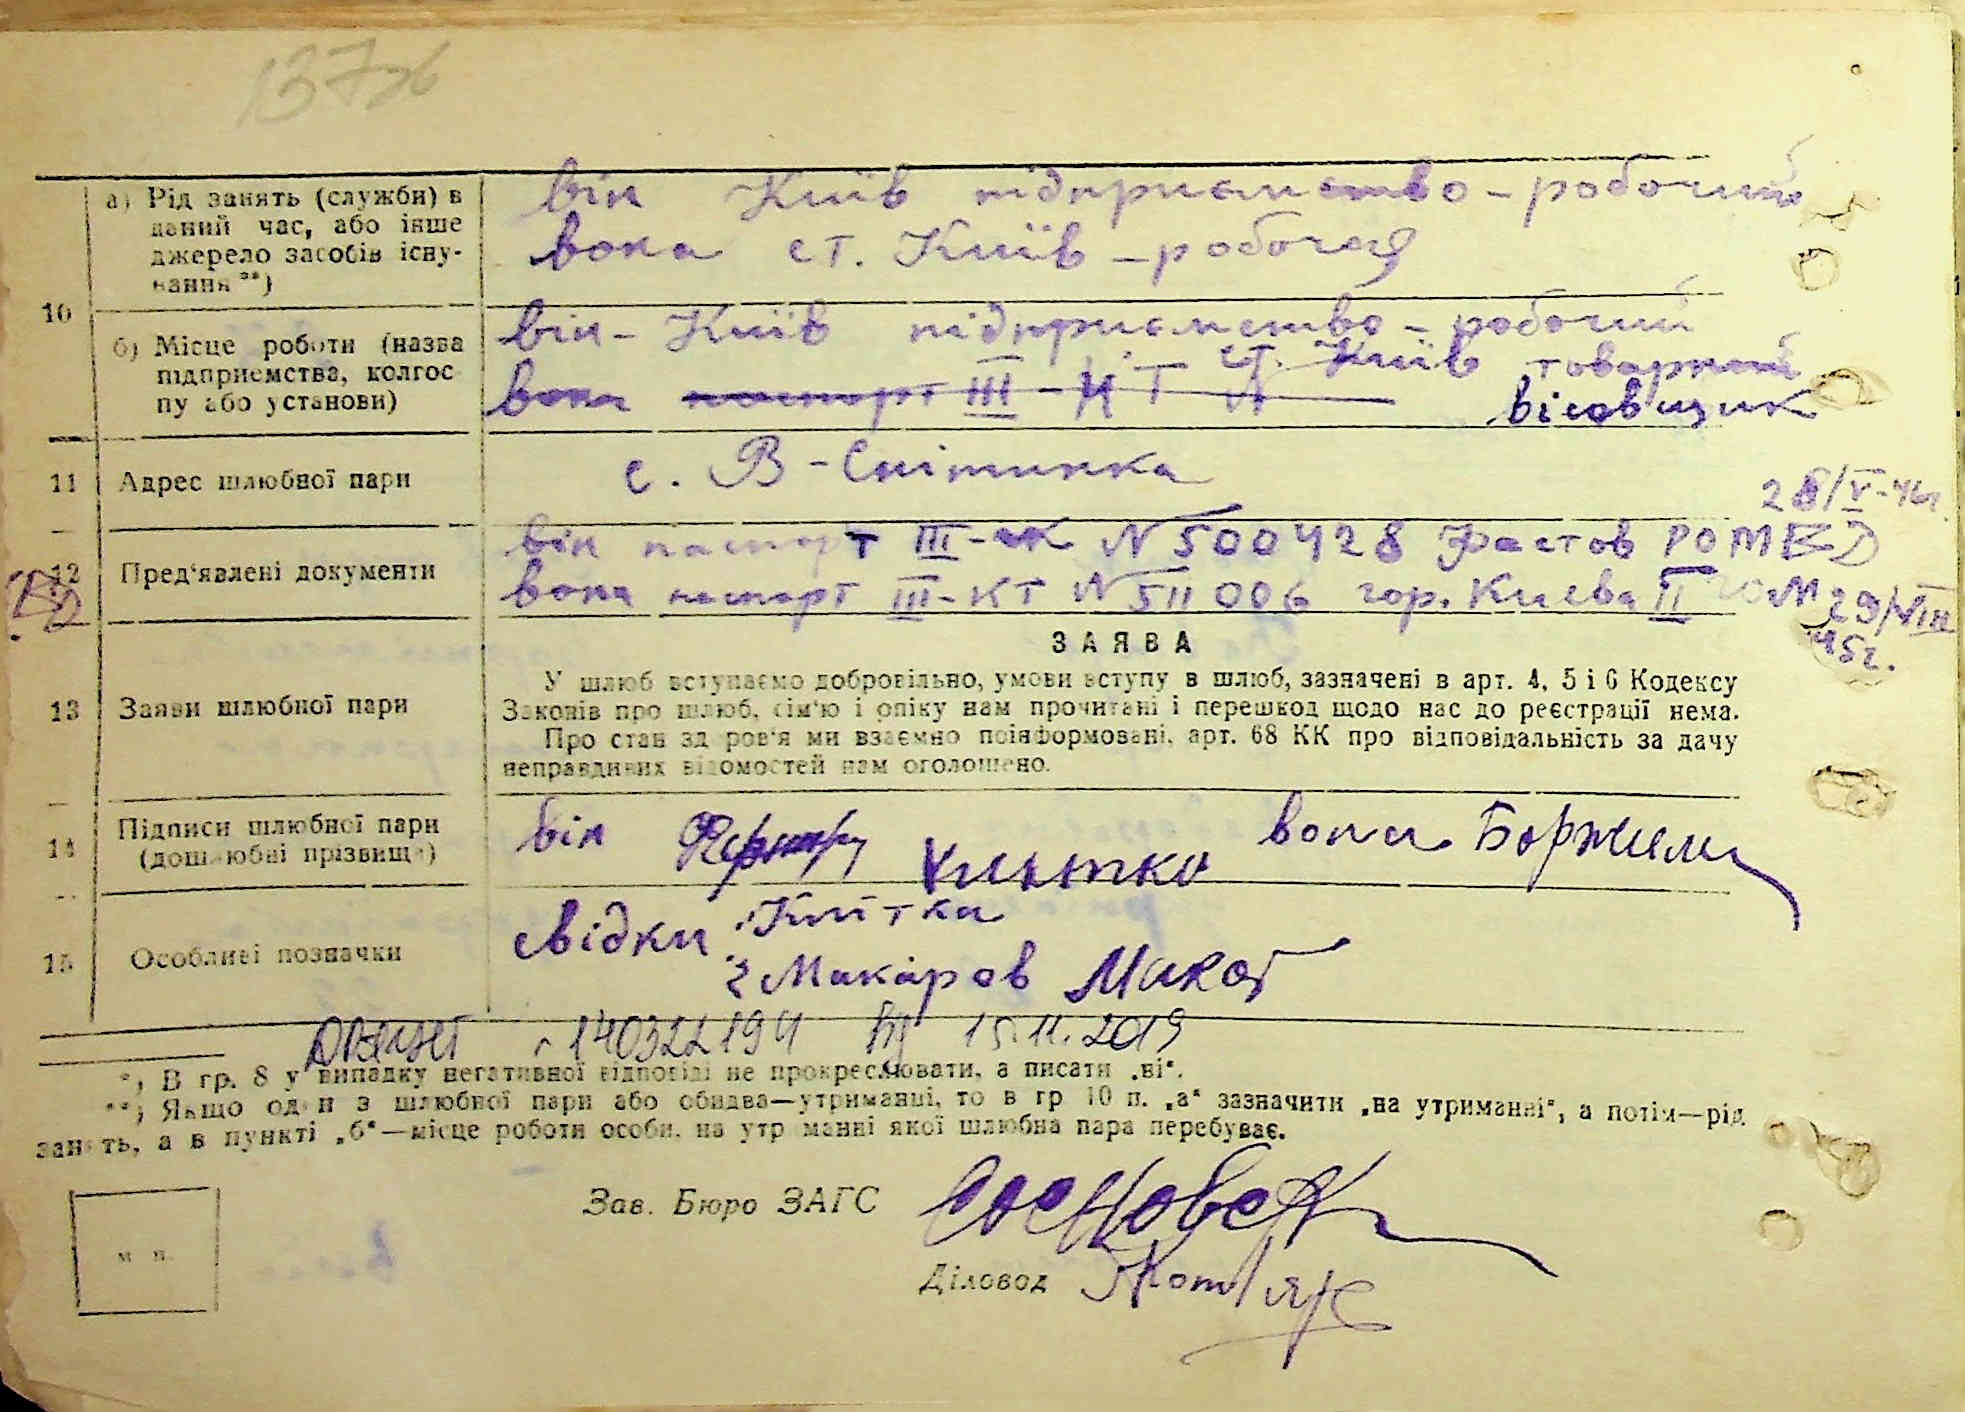 137
10
а) Рід занять (служби) в даний час, або інше джерело засобів існування **)
він Київ підприємство - робочий
вона ст. Київ - робочая
б) Місце роботи (назва підприємства, колгоспу або установи)
він - Київ підприємство - робочий
ст. Київ товарный
вона паспорт III - КТ № вісовщик
11 Адрес шлюбної пари
с. В - Снітинка
28/V-46г.
12 Пред'явлені документи
він паспорт III- № 500428 Фастов РОМВД
вона паспорт III-КТ № 511006 гор. Києва II 29/VIII
45г.
ЗАЯВА
13 Заяви шлюбної пари
У шлюб вступаємо добровільно, умови вступу в шлюб, зазначені в арт. 4, 5 і 6 Кодексу
Законів про шлюб, сім'ю і опіку нам прочитані і перешкод щодо нас до реєстрації нема.
Про стан здоров'я ми взаємно поінформовані, арт. 68 КК про відповідальність за дачу
неправдивих відомостей нам оголошено.
14 Підписи шлюбної пари (дошлюбні прізвища)
він вона Боржим
15 Особливі позначки
свідки: Квітка
2 Макаров Макаr
140322194 15.11.2019
*) В гр. 8 у випадку негативної відповіді не прокреслювати, а писати „ні“.
**) Якщо один з шлюбної пари або обидва—утриманці, то в гр 10 п. „а“ зазначити „на утриманні“, а потім—рід
занять, а в пункті „б“—місце роботи особи, на утриманні якої шлюбна пара перебуває.
Зав. Бюро ЗАГС
Діловод Котляр
м п.